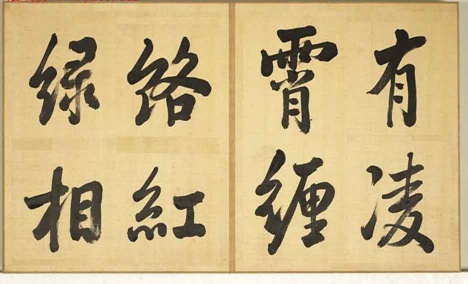 有凌
霄纏
絡紅
綠相